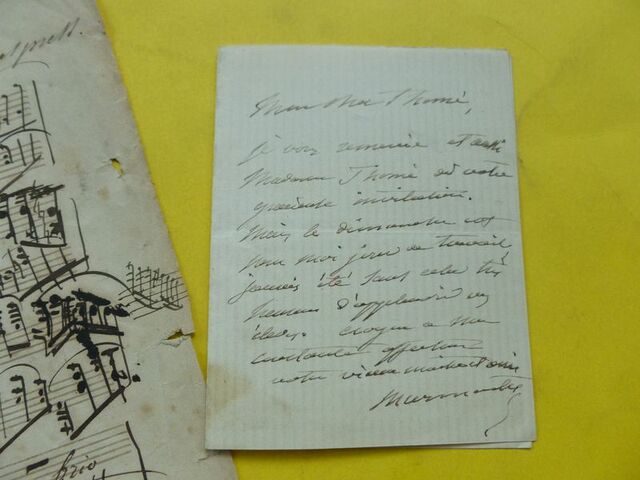 Mon cher Thomé,
je vous remercie et aussi
Madame Thomé de votre
gracieuse invitation.
Mais le dimanche est
pour moi jour de travail
j'aurais été sans cela très
heureux d'applaudir vos
élèves. Croyez a ma
constante affection
votre vieux maitre et ami
Marmontel
brio